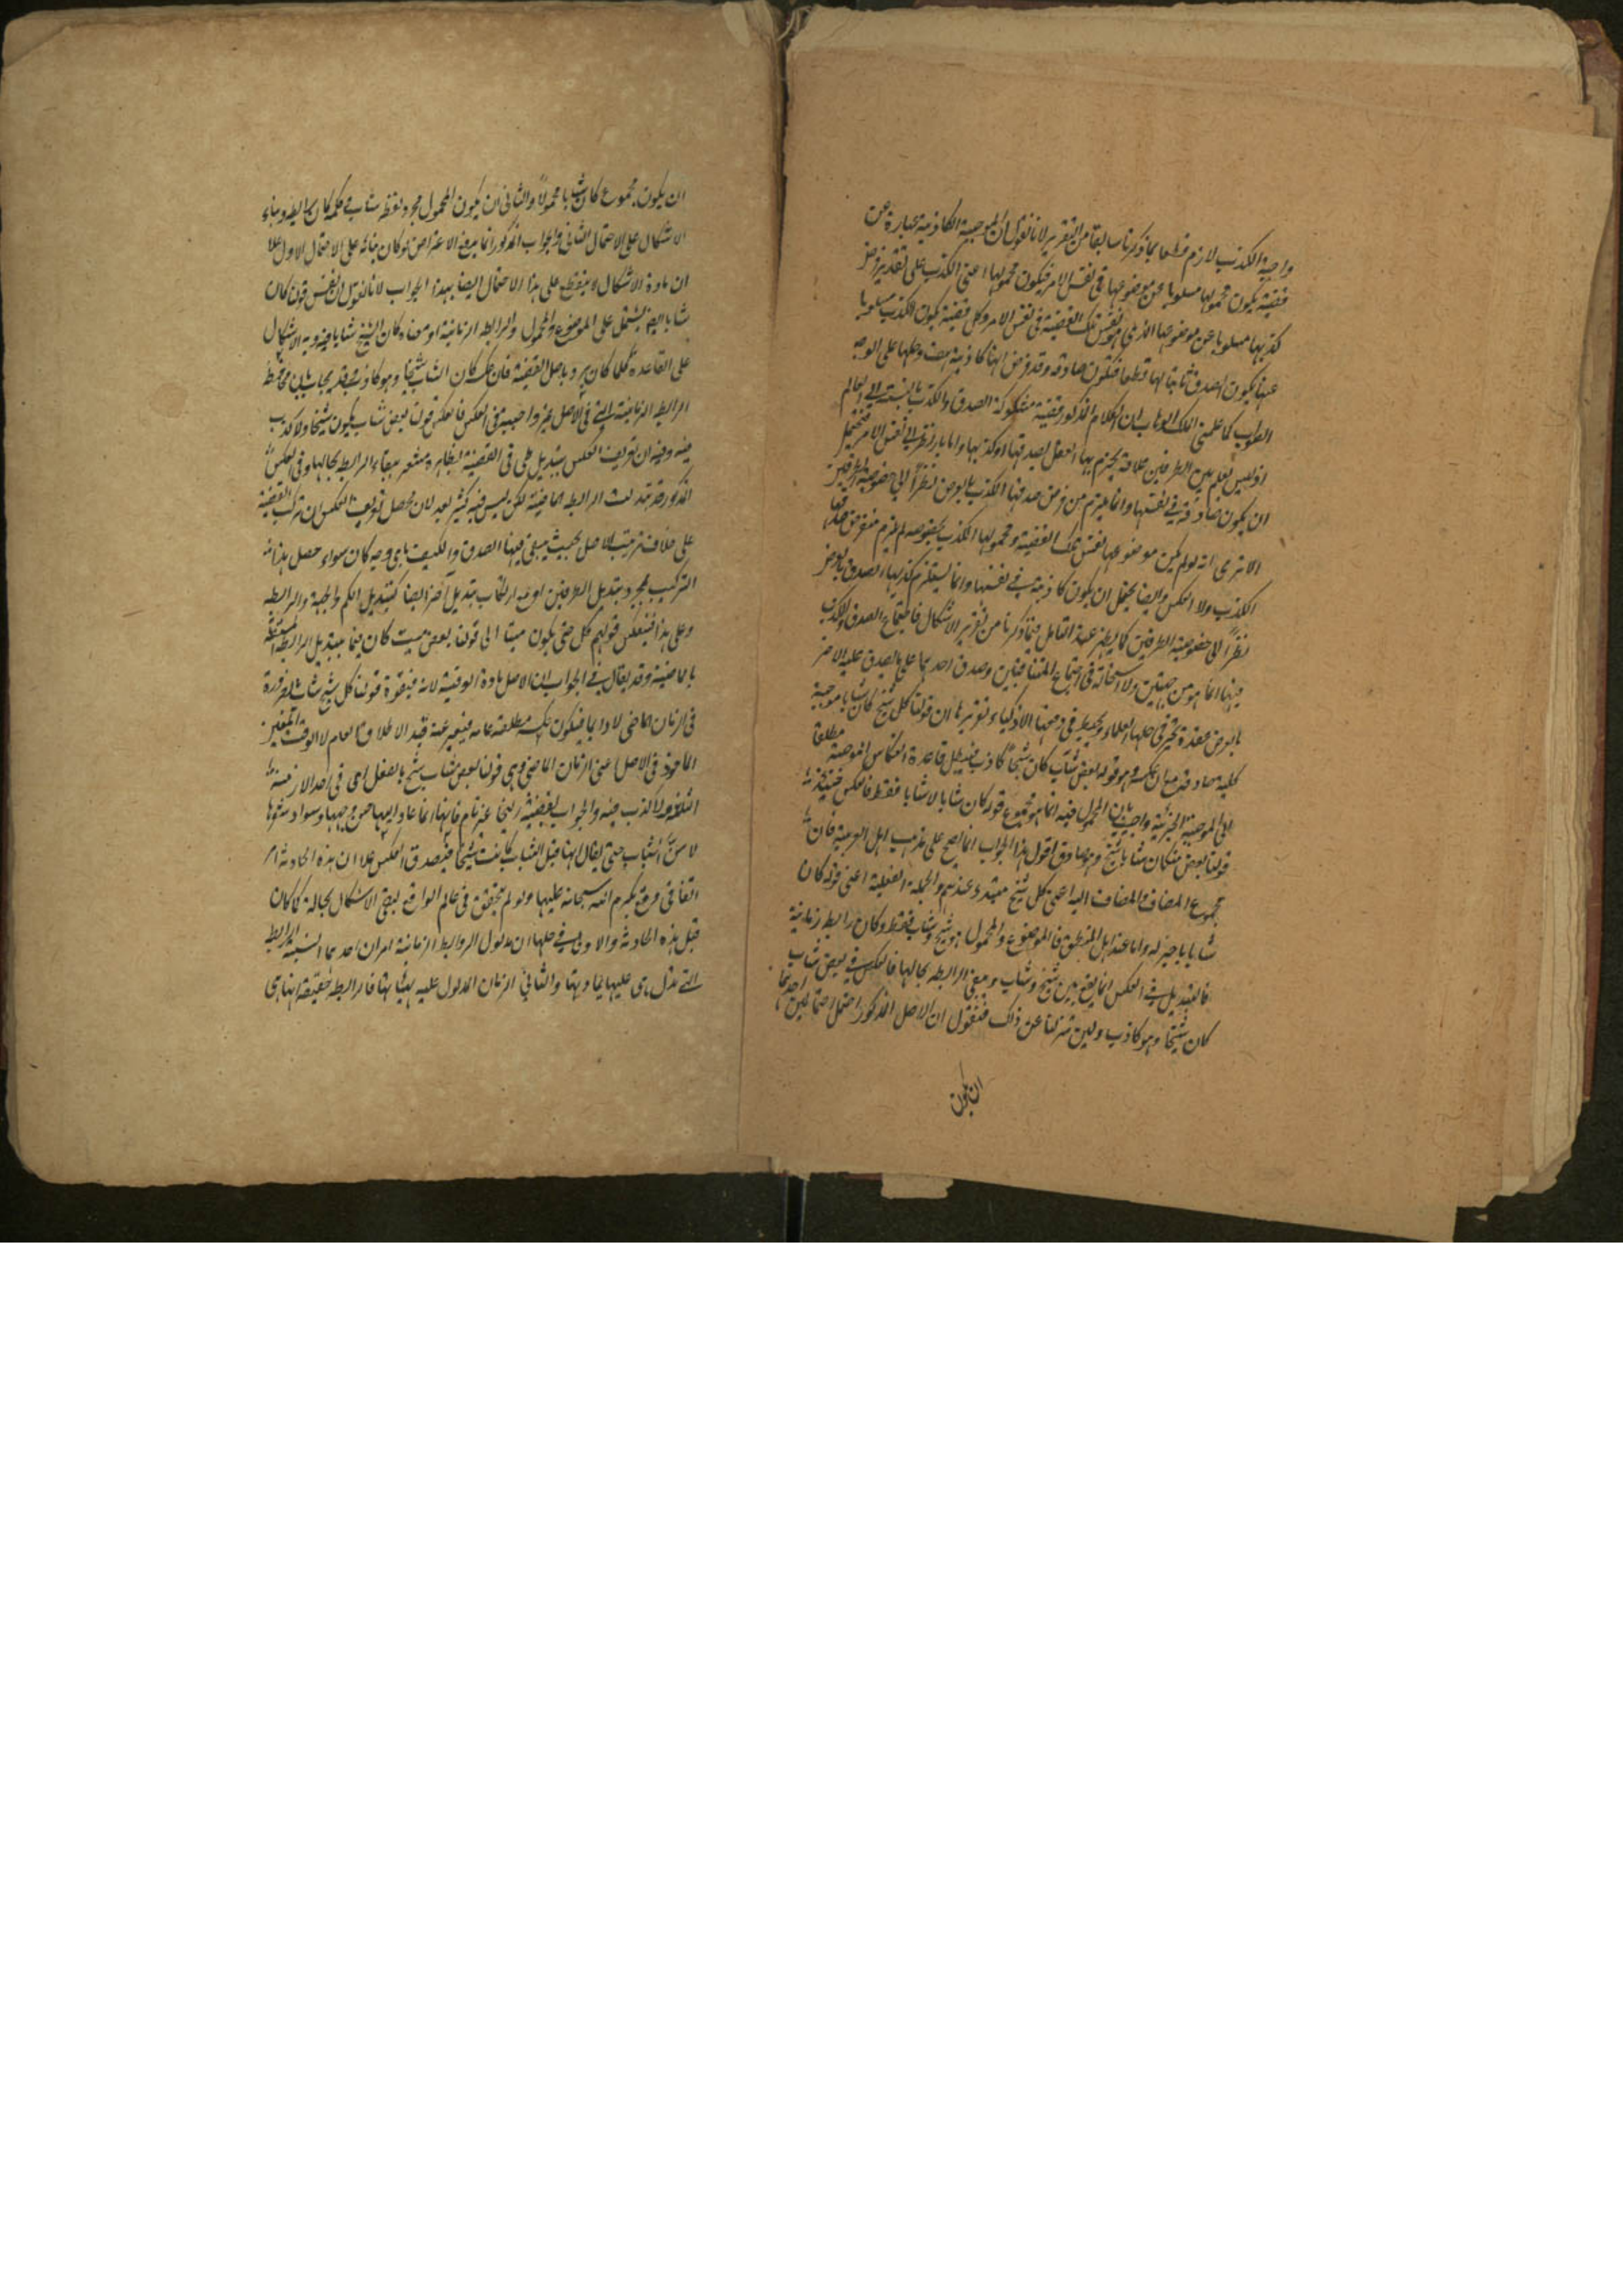 واجبة الكذب لازم قطعا بما ذكرنا سابقا من التقرير لانا نقول ان الموجبة الكاذبة عبارة عن
قضية يكون محمولها مسلوبا عن موضوعها في نفس الامر فيكون محمولها اعنى الكذب على تقدير فرض
كذبها مسلوبا عن موضوعها الذي هو نفس تلك القضية في نفس الامر وكل قضية يكون الكذب مسلوبا
عنها يكون الصدق ثابتا لها قطعا فتكون صادقة وقد فرض انها كاذبة هف وحلها على الوجه
الصواب كما علمنى الملك الوهاب ان الكلام المذكور قضية مشكوكة الصدق والكذب بالنسبة الى العالم
اذ ليس يعلم بين الطرفين علاقة يجزم بها العقل بصدقها او كذبها واما بالنظر الى نفس الامر فيحتمل
ان يكون صادقة في نفسها وانما يلزم من فرض صدقها الكذب بالعرض نظرا الى خصوصية الطرفين
الا ترى انه لو لم يكن موضوعها نفس تلك القضية ومحمولها الكذب بخصوصه لم يلزم من فرض صدقها
الكذب ولا العكس وايضا يحتمل ان يكون كاذبة في نفسها وانما يستلزم كذبها الصدق بالعرض
نظرا الى خصوصية الطرفين كما يظهر عند التامل فيما ذكرنا من تقرير الاشكال فاجتماع الصدق والكذب
فيها انما هو من جهتين ولا استحالة في اجتماع المتنافيين وصدق احدهما على ما يصدق عليه الاخر
بالعرض عقدة تحير في حلها العلماء ويخبط في فتحها الاذكياء تقريرها ان قولنا كل شيخ كان شابا موجبة
كلية صادقة مع ان عكسه وهو قوله بعض الشاب كان شيخا كاذب فيبطل قاعدة انعكاس الموجبة مطلقا
الى الموجبة الجزئية واجيب بان المحمول فيه انما هو مجموع قوله كان شابا لا شابا فقط فالعكس حينئذ
قولنا بعض من كان شابا شيخ وهو صادق اقول هذا الجواب انما يصح على مذهب اهل العربية فان
مجموع المضاف والمضاف اليه اعنى كل شيخ مبتدء عندهم والجملة الفعلية اعنى قوله كان
شابا خبر له واما عند اهل المنطق فالموضوع والمحمول هو شيخ وشاب فقط وكان رابطة زمانية
فالتبديل في العكس انما يقع بين شيخ وشاب ويبقى الرابطة بحالها فالعكس بعض شاب
كان شيخا وهو كاذب ولئن تنزلنا عن ذلك فنقول ان الاصل المذكور احتمل احتمالين احدهما
ان يكون
ان يكون مجموع كان شابا محمولا والثاني ان يكون المحمول مجرد لفظ شاب وكلمة كان رابطة وبناء
الاشكال على الاحتمال الثاني والجواب المذكور انما يدفع الاعتراض لو كان بناؤه على الاحتمال الاول
ان مادة الاشكال لا ينقطع على هذا الاحتمال ايضا بهذا الجواب لانا نقول ان نفس قولنا كان
شابا ايضا يشتمل على الموضوع والمحمول والرابطة الزمانية اذ معناه كان الشيخ شابا وفيه الاشكال
على القاعدة كما كان يرد باصل القضية فان عكسه كان الشاب شيخا وهو كاذب وقد يجاب بان محافظة
الرابطة الزمانية التي في الاصل غير واجبة في العكس فالعكس قولنا بعض شاب يكون شيخا ولا كذب
فيه وفيه ان تعريف العكس بتبديل طرفي القضية بظاهره مشعر ببقاء الرابطة بحالها وفي العكس
المذكور قد تبدلت الرابطة الماضية لكن ليس فيه كثير بعد لان محصل تعريف العكس ان تركب القضية
على خلاف ترتيب الاصل بحيث يبقى فيها الصدق والكيف باى وجه كان سواء حصل هذا
التركيب بمجرد تبديل الطرفين او مع ارتكاب تبديل آخر ايضا كتبديل الكم والجهة والرابطة
وعلى هذا فينعكس قولهم كل حى يكون ميتا الى قولنا بعض ميت كان حيا بتبديل الرابطة المستقبلة
بالماضية وقد يقال في الجواب ان الاصل مادة الوقتية لانه في قوة قولنا كل شيخ شاب بالضرورة
في الزمان الماضى لا دائما فيكون عكسه مطلقة عامة فيعتبر عنه قيد الاطلاق العام لا الوقت المعين
الماخوذ في الاصل اعنى الزمان الماضى وهى قولنا بعض شاب شيخ بالفعل اى في احد الازمنة
الثلاثة ولا كذب فيه والجواب بقضية زليخا غير تام فانها انما عاد اليها حسن وجهها وسواد شعرها
لا سن الشباب حتى يقال انها قبل الشباب كانت شيخا فيصدق العكس علا ان هذه الحادثة امر
اتفاقى وقع بكرم الله سبحانه عليها ولو لم يتحقق في عالم الواقع لبقى الاشكال بحاله كما كان
قبل هذه الحادثة والاولى في حلها ان مدلول الروابط الزمانية امران احدهما النسبة الرابطة
التى تدل هى عليها بمادتها والثاني الزمان المدلول عليه بهيئاتها فالرابطة حقيقة انما هى